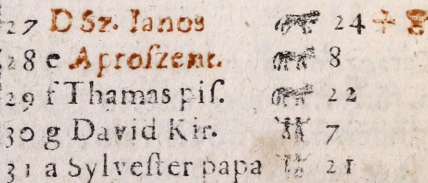 27 D Sz. Ianos 24
28 e Aproſzent. 8
29 f Thamas piſ. 22
30 g David Kir. 7
31 a Sylveſter papa 21